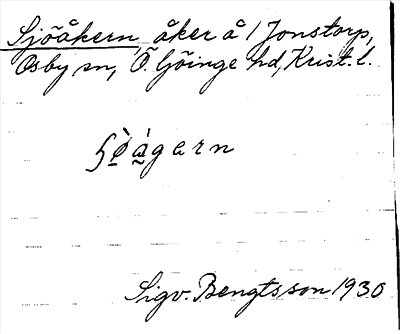 Sjöåkern, åker å 1 Jonstorp,
Osby sn, Ö. Göinge hd, Krist. l.
ɧø̀ ágern
Sigv. Bengtsson 1930